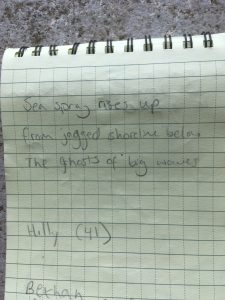 Sea spray rises up
from jagged shoreline below
The ghosts of big waves
Holly (41)
Bexhan